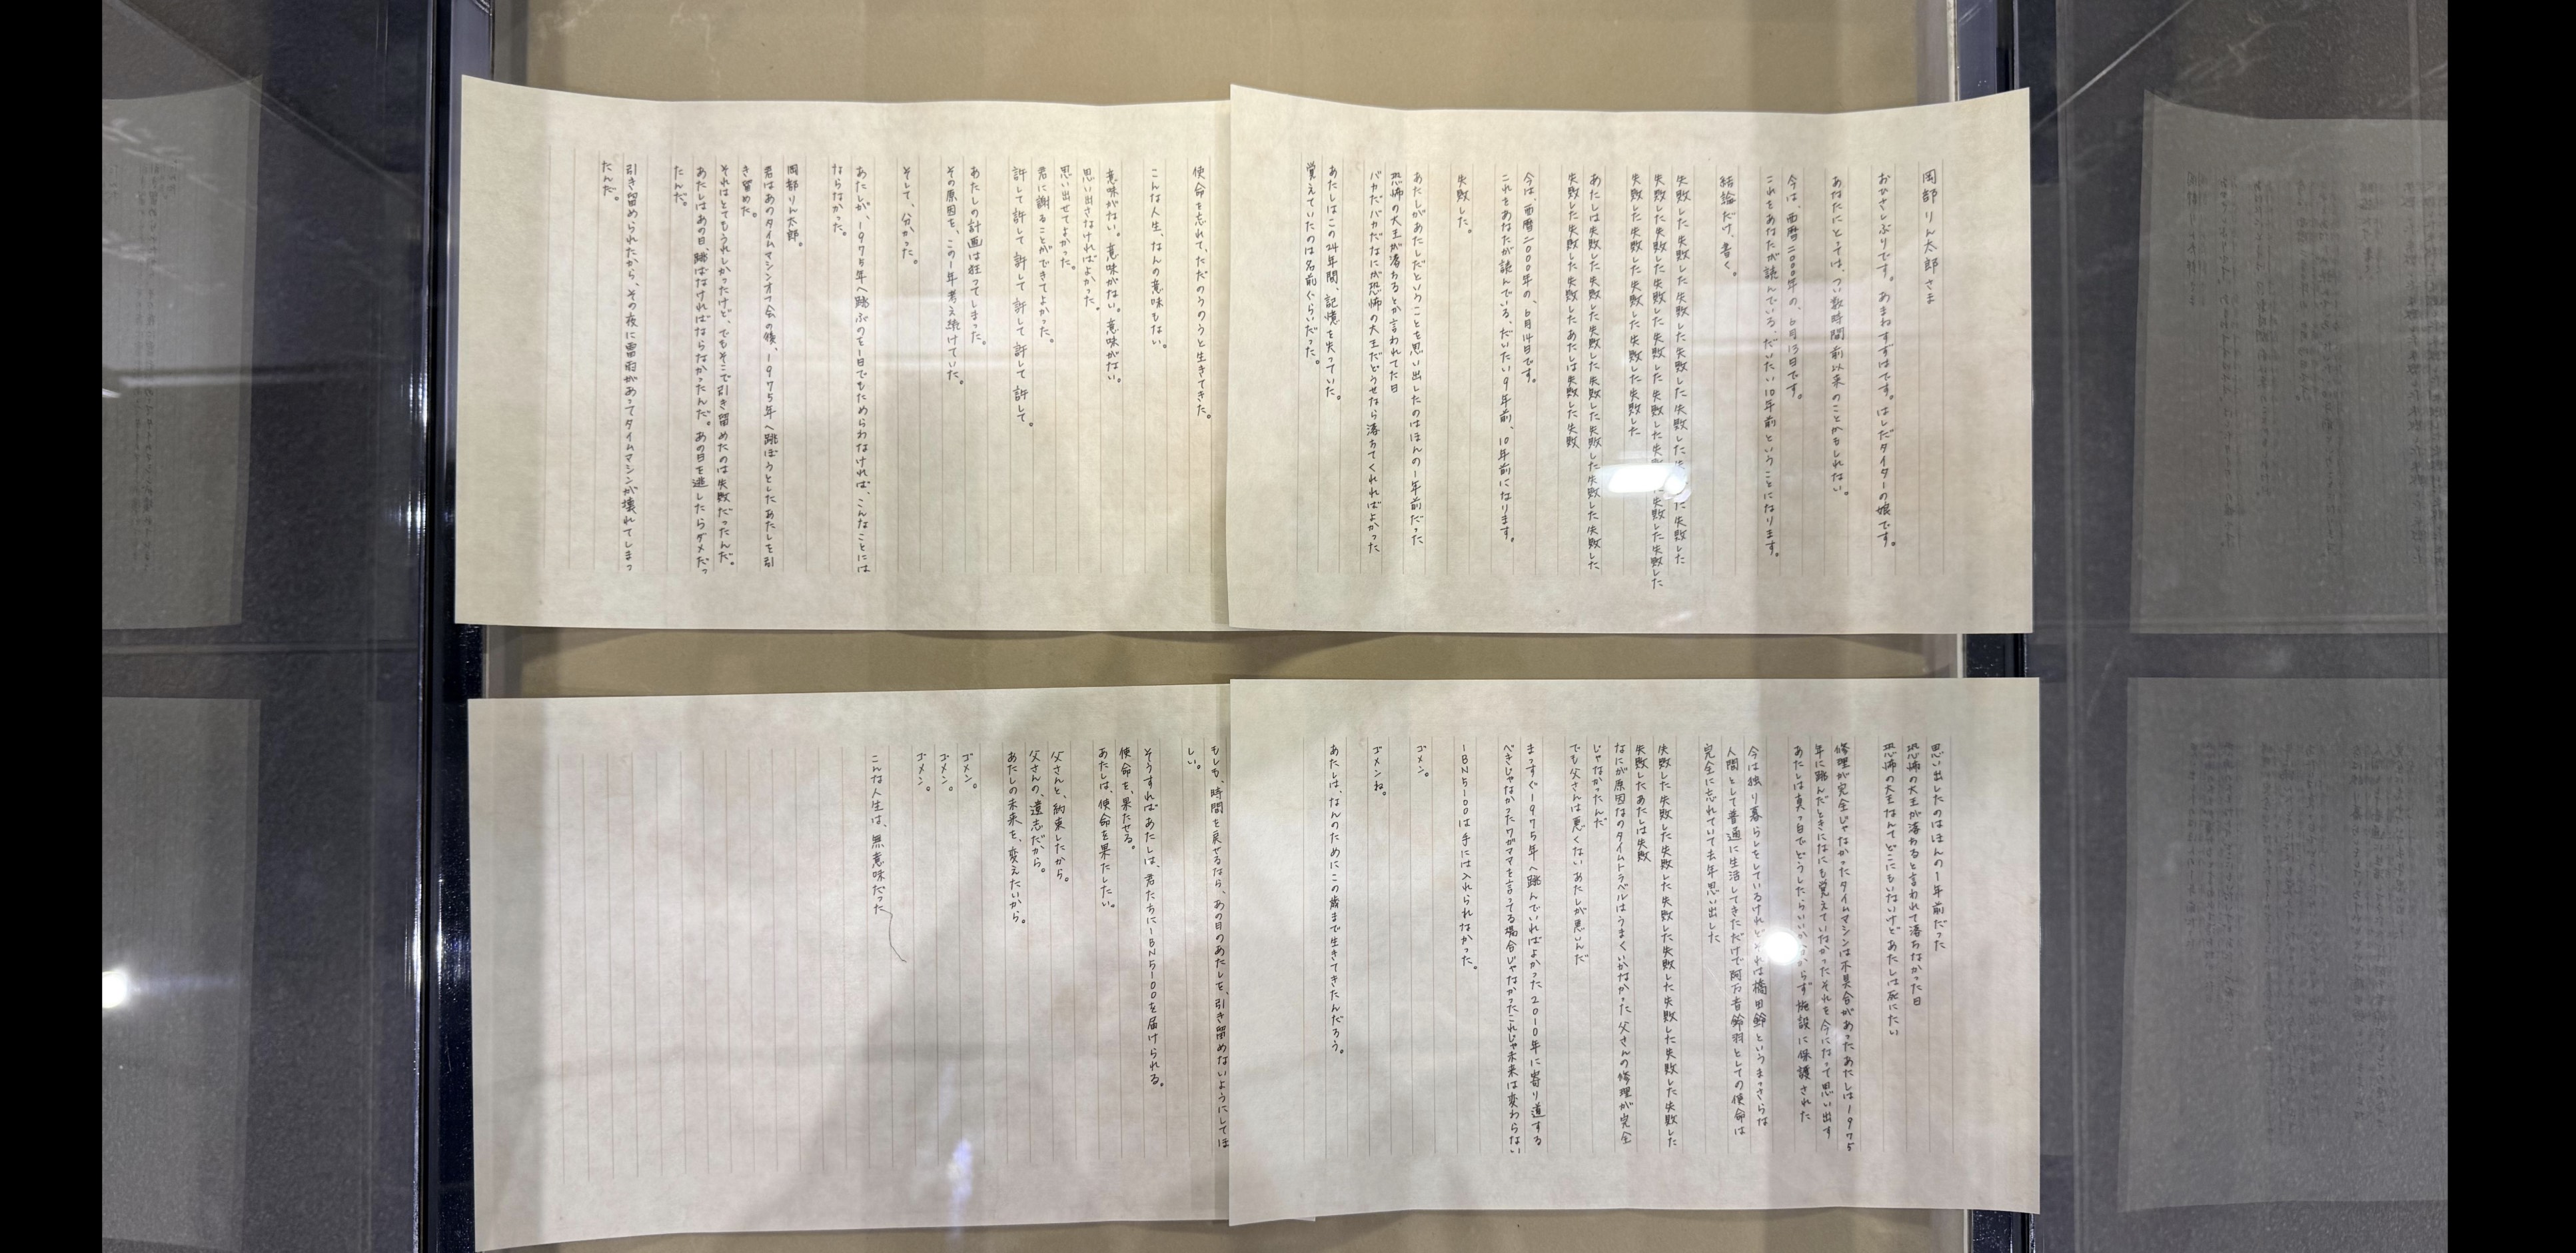 岡部りん太郎さま
おひさしぶりです。あまねすずはです。はしだタイターの娘です。
あなたにとっては、つい数時間前以来のことかもしれない。
今は、西暦二〇〇〇年の、6月13日です。
これをあなたが読んでいる、だいたい10年前ということになります。
結論だけ、書く。
失敗した失敗した失敗した失敗した失敗した失敗した失敗した
失敗した失敗した失敗した失敗した失敗した失敗した失敗した
失敗した失敗した失敗した失敗した失敗した
あたしは失敗した失敗した失敗した失敗した失敗した失敗した
失敗した失敗した失敗した失敗したあたしは失敗した失敗
今は、西暦二〇〇〇年の、6月14日です。
これをあなたが読んでいる、だいたい9年前、10年前になります。
失敗した。
あたしがあたしだということを思い出したのはほんの1年前だった
恐怖の大王が落ちるとか言われてた日
バカだバカだなにが恐怖の大王だどうせなら落ちてくれればよかった
あたしはこの24年間、記憶を失っていた。
覚えていたのは名前ぐらいだった。
使命を忘れて、ただのうのうと生きてきた。
こんな人生、なんの意味もない。
意味がない。意味がない。意味がない。
思い出さなければよかった。
思い出せてよかった。
君に謝ることができてよかった。
許して許して許して許して許して許して。
あたしの計画は狂ってしまった。
その原因を、この1年考え続けていた。
そして、分かった。
あたしが、1975年へ跳ぶのを1日でもためらわなければ、こんなことには
ならなかった。
岡部りん太郎。
君はあのタイムマシンオフ会の後、1975年へ跳ぼうとしたあたしを引
き留めた。
それはとてもうれしかったけど、でもそこで引き留めたのは失敗だったんだ。
あたしはあの日、跳ばなければならなかったんだ。あの日を逃したらダメだっ
たんだ。
引き留められたから、その夜に雷雨があってタイムマシンが壊れてしまっ
たんだ。
思い出したのはほんの1年前だった
恐怖の大王が落ちると言われて落ちなかった日
恐怖の大王なんてどこにもいないけどあたしは死にたい
修理が完全じゃなかったタイムマシンは不具合があったあたしは1975
年に跳んだときになにも覚えていなかったそれを今になって思い出す
あたしは真っ白でどうしたらいいか分からず施設に保護された
今は独り暮らしをしているけれどそれは橋田鈴というまっさらな
人間として普通に生活してきただけで阿万音鈴羽としての使命は
完全に忘れていて去年思い出した
失敗した失敗した失敗した失敗した失敗した失敗した失敗した
失敗したあたしは失敗
なにが原因なのタイムトラベルはうまくいかなかった父さんの修理が完全
じゃなかったんだ
でも父さんは悪くないあたしが悪いんだ
まっすぐ1975年へ跳んでいればよかった2010年に寄り道する
べきじゃなかったワガママを言ってる場合じゃなかったこれじゃ未来は変わらない
IBN5100は手には入れられなかった。
ゴメン。
ゴメンね。
あたしは、なんのためにこの歳まで生きてきたんだろう。
もしも、時間を戻せるなら、あの日のあたしを、引き留めないようにしてほ
しい。
そうすればあたしは、君たちにIBN5100を届けられる。
使命を、果たせる。
あたしは、使命を果たしたい。
父さんと、約束したから。
父さんの、遺志だから。
あたしの未来を、変えたいから。
ゴメン。
ゴメン。
ゴメン。
こんな人生は、無意味だった